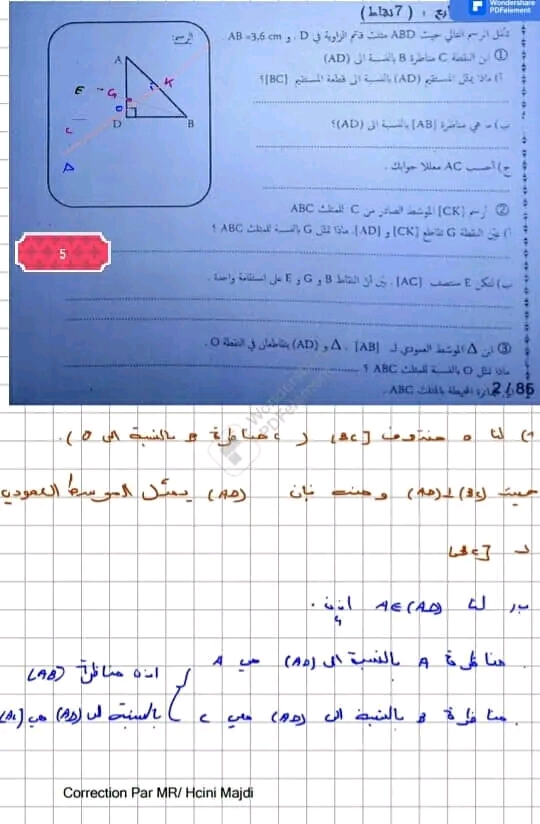 Wondershare
PDFelement
(7 نقاط)
تأمل الرسم التالي حيث ABD مثلث قائم الزاوية في D . و AB =3,6 cm
الرسم:
① ابن النقطة C مناظرة B بالنسبة الى (AD)
أ) ماذا يمثل المستقيم (AD) بالنسبة الى قطعة المستقيم [BC]؟
ب) ما هي مناظرة [AB] بالنسبة الى (AD)؟
ج) أحسب AC معللا جوابك .
② أرسم [CK] الموسط الصادر من C للمثلث ABC
أ) عيّن النقطة G تقاطع [CK] و [AD]. ماذا تمثل G بالنسبة للمثلث ABC ؟
ب) لتكن E منتصف [AC] . بيّن أن النقاط B و G و E على استقامة واحدة .
③ ابن Δ الموسط العمودي لـ [AB] . Δ و (AD) يتقاطعان في النقطة O .
ماذا تمثل O بالنسبة للمثلث ABC ؟
المحيطة بالمثلث ABC .
2 / 86
A
K
E
G
O
D
B
C
Δ
5
Wondershare
PDFelement
أ) لنا D منتصف [BC] ( C مناظرة B بالنسبة الى D ).
حيث (BC)⊥(AD) ومنه فإن (AD) يمثل الموسط العمودي
لـ [BC]
ب) لنا A∈(AD) إذن :
. مناظرة A بالنسبة الى (AD) هي A
. مناظرة B بالنسبة الى (AD) هي C
إذن مناظرة [AB]
بالنسبة الى (AD) هي [AC]
Correction Par MR/ Hcini Majdi